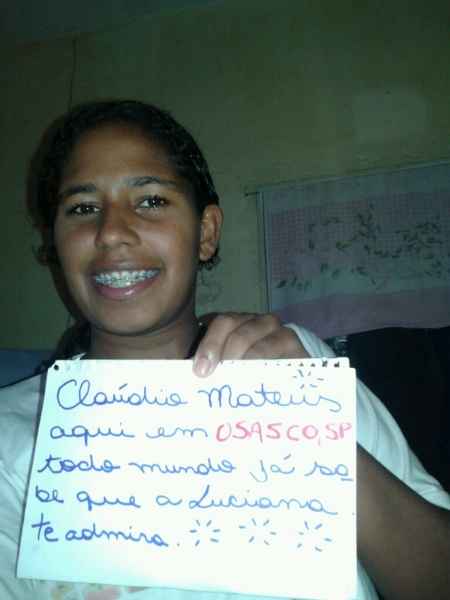 Claúdio Mateus
aqui em OSASCO, SP
todo mundo já sa
be que a Luciana
te admira.